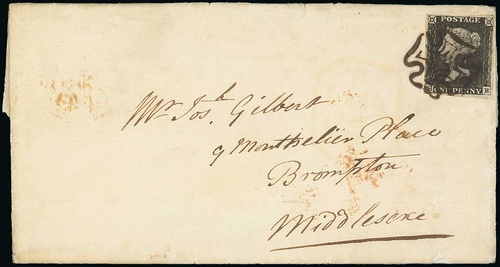 POSTAGE
ONE PENNY B
Mr Josh Gilbert
9 Monthelier Place
Brompton
Middlesexe